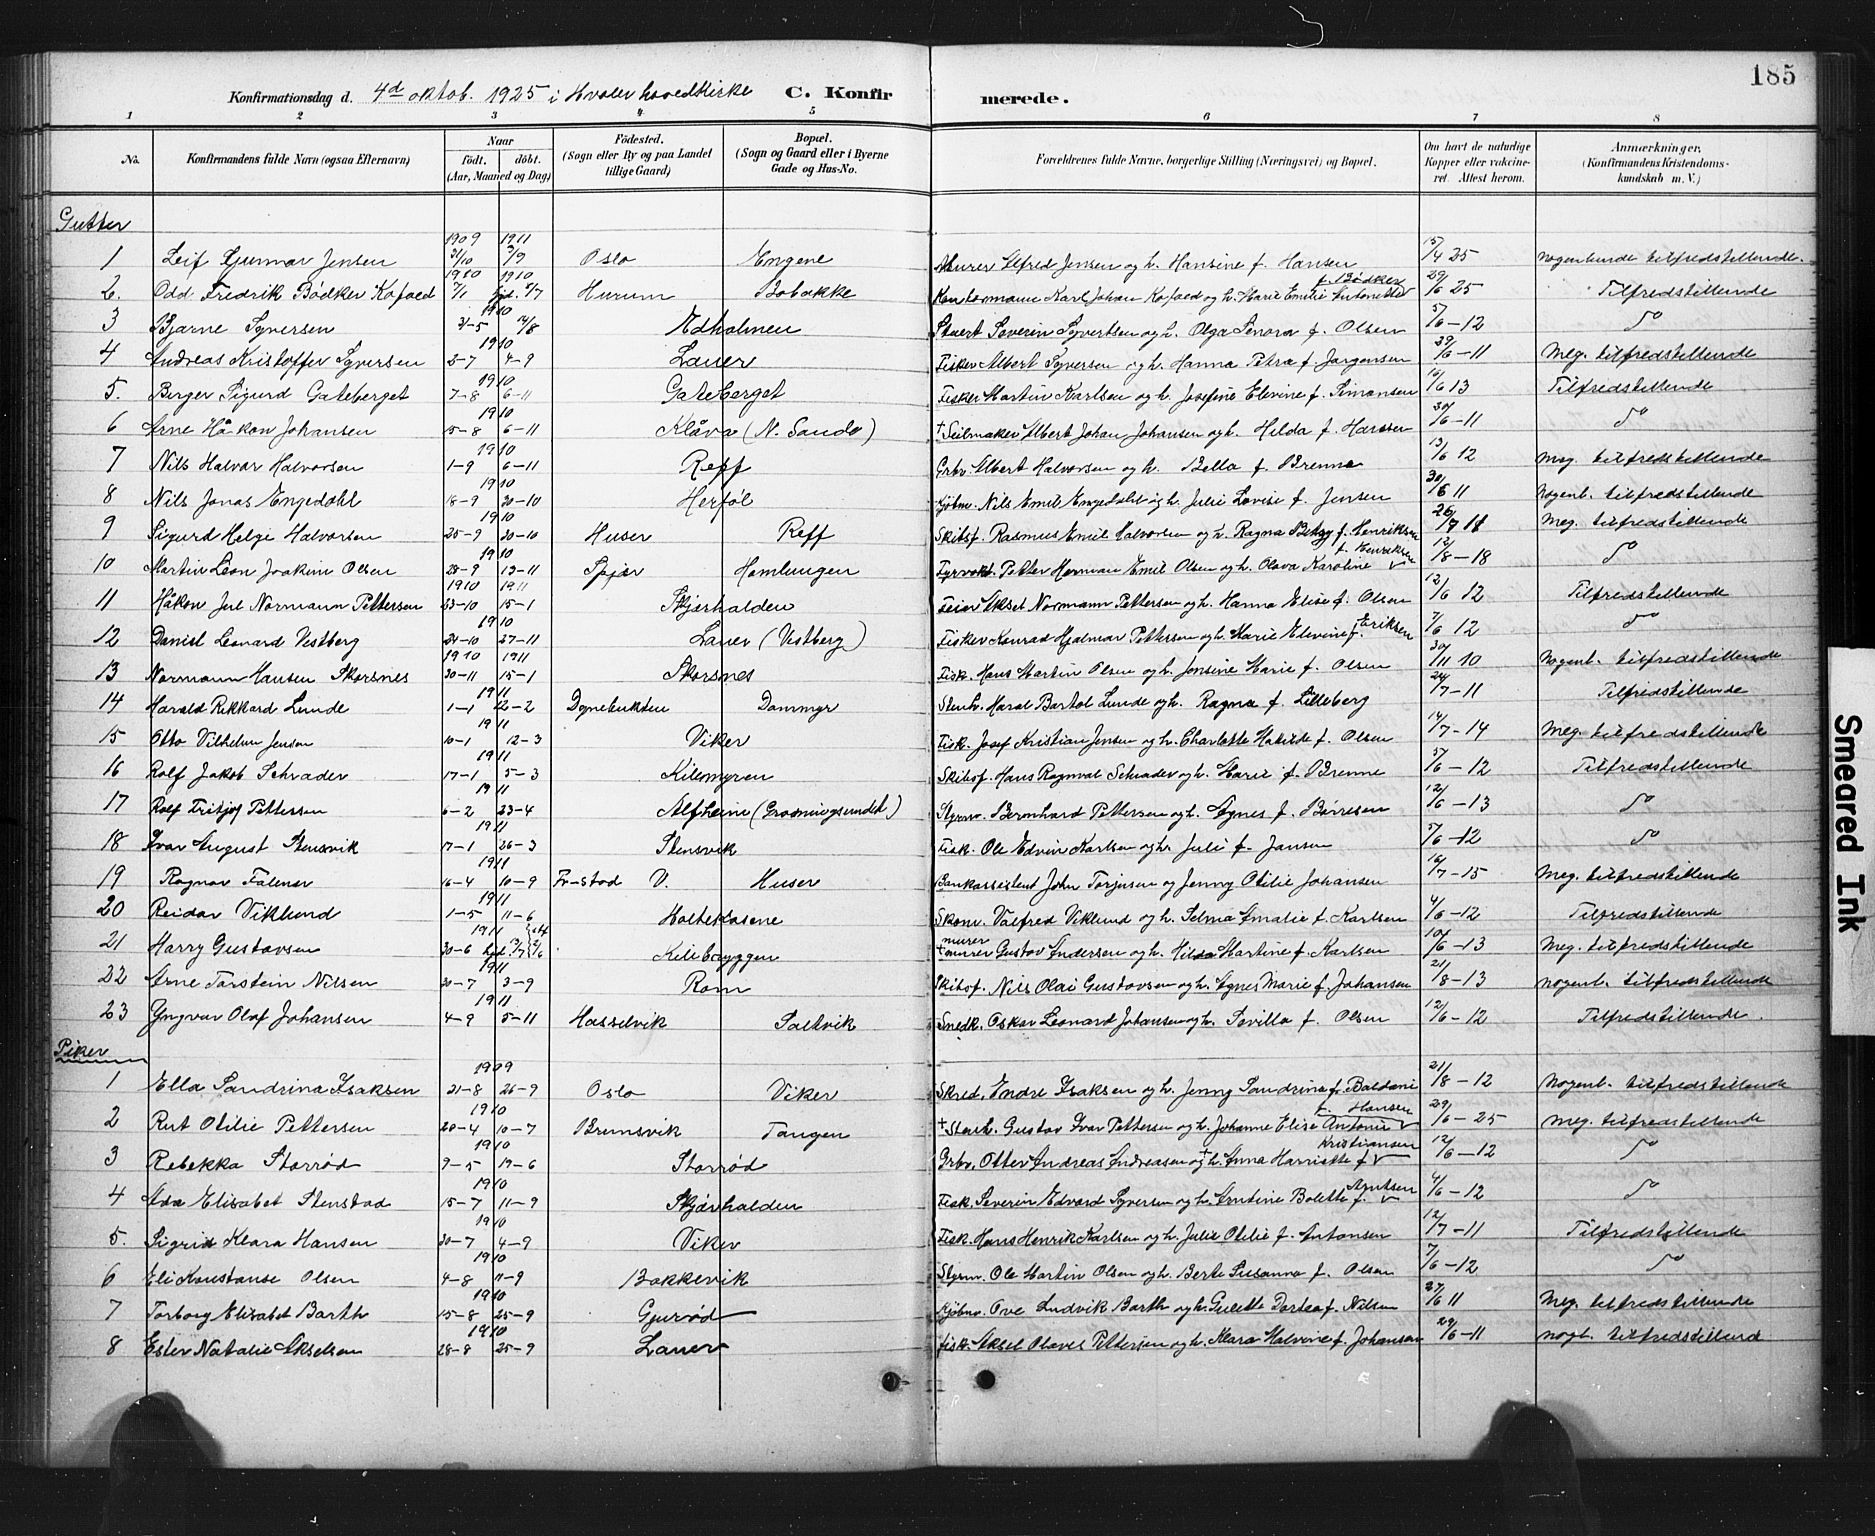 185
Konfirmationsdag d. 4d oktob. 1925 i Hvaler hovedkirke C. Konfir merede.
1 2 3 4 5 6 7 8
No. Konfirmandens fulde Navn (ogsaa Efternavn) Naar födt. döbt. (Aar, Maaned og Dag) Födested. (Sogn eller By og paa Landet tillige Gaard) Bopæl. (Sogn og Gaard eller i Byerne Gade og Hus-No. Forældrenes fulde Navne, borgerlige Stilling (Næringsvei) og Bopæl. Om havt de naturlige Kopper eller vakcineret. Attest herom. Anmærkninger. (Konfirmandens Kristendomskundskab m. V.)
Gutter
1 Leif Gunnar Jensen 1909 31/10 1911 3/9 Oslo Engene Murer Alfred Jensen og h. Hansine f. Hansen 15/4 25 Nogenlunde tilfredstillende.
2. Odd Fredrik Bødker Kofoed 1910 7/1 1910 7/7 Hurum Bobakke Kontormann Karl Johan Kofoed og h. Marie Emilie Antonette f. Bødker 29/6 25 Tilfredstillende
3 Bjarne Syversen 1910 31-5 14/8 Edholmen Stuert Severin Syvertsen og h. Olga Lenora f. Olsen 5/6-12 do
4 Andreas Kristoffer Syversen 1910 2-7 4-9 Lauer Fisker Albert Syversen og h. Hanna Petra f. Jørgensen 29/6-11 Meg. tilfredstillende
5. Birger Sigurd Gateberget 1910 7-8 6-11 Gateberget Fisker Martin Karlsen og h. Josefine Elevine f. Simonsen 16/6 13 Tilfredstillende
6 Arne Håkon Johansen 1910 15-8 6-11 Klåva (N. Sandø) + Seilmaker Albert Johan Johansen og h. Hilda f. Hansen 30/6-11 do
7 Nils Halvar Halvorsen 1910 1-9 6-11 Reff Grbr. Albert Halvorsen og h. Bella f. Brenne 13/6 12 Meg. tilfredstillende
8 Nils Jonas Engedahl 1910 18-9 30-10 Herføl Kjøbm. Nils Emil Engedahl og h. Julie Lovise f. Jensen 30/6 11 Nogenl. tilfredstillende
9 Sigurd Helge Halvorsen 1910 25-9 30-10 Huser Reff Skibsf. Rasmus Emil Halvorsen og h. Ragna Betzy f. Henriksen 26/7 18 Meg. tilfredstillende
10 Martin Leon Joakim Olsen 1910 28-9 13-11 Spjær Homlungen Fyrvokt. Petter Herman Emil Olsen og h. Olava Karoline f. Henriksen 12/8-18 do
11 Håkon Jerl Normann Pettersen 1910 23-10 1911 15-1 Skjærhalden Feier Aksel Normann Pettersen og h. Hanna Elise f. Olsen 12/6 12 Tilfredstillende
12 Daniel Leonard Vestberg 1910 24-10 27-11 Lauer (Vestberg) Fisker Konrad Hjalmar Pettersen og h. Marie Elevine f. Eriksen 7/6 12 do
13 Normann Hansen Skorsnes 1910 20-11 1911 15-1 Skorsnes Fisk. Hans Martin Olsen og h. Jensine Marie f. Olsen 30/11 10 Nogenl. tilfredstillende
14 Harald Rikkard Lunde 1911 1-1 12-2 Dynebukten Dammyr Stenh. Haral Bartol Lunde og h. Ragna f. Lilleberg 24/7-11 Tilfredstillende
15 Otto Vilhelm Jensen 1911 10-1 12-3 Viker Fisk. Josef Kristian Jensen og h. Charlotte Matilde f. Olsen 14/7-14 Meg. tilfredstillende
16 Rolf Jakob Schrader 1911 17-1 5-3 Kilemyren Skibsf. Hans Ragnvald Schrader og h. Marie f. Brenne 5/6-12 Tilfredstillende
17 Rolf Fritjof Pettersen 1911 6-2 23-4 Alfheim (Grønningsundet) Styrm. Bernhard Pettersen og h. Agnes f. Børresen 12/6-13 do
18 Ivar August Stensvik 1911 17-1 26-3 Stensvik Fisk. Ole Edvin Karlsen og h. Julie f. Jansen 5/6-12 do
19 Ragnar Falener 1911 16-4 10-9 Fr-stad V. Huser Bankassistent John Torjusen og Jenny Otilie Johansen 16/7-15 Meg. tilfredstillende
20 Reidar Viklund 1911 1-5 11-6 Holtekasene Skom. Valfred Viklund og h. Selma Amalie f. Karlsen 4/6-12 Tilfredstillende
21 Harry Gustavsen 1911 30-6 Kilebryggen + murer Gustav Andersen og h. Hilda Martine f. Karlsen 10/6-13 Meg. tilfredstillende
22 Arne Torstein Nilsen 1911 30-7 3-9 Rom Skibsf. Nils Olai Gustavsen og h. Agnes Marie f. Johansen 21/8-13 nogenl. tilfredstillende
23 Yngvar Olaf Johansen 1911 4-9 5-11 Hasselvik Saltvik Snedk. Oskar Leonard Johansen og h. Sevilla f. Olsen 12/6-12 Tilfredstillende.
Piker
1 Ella Sandrina Isaksen 1909 21-8 26-9 Oslo Viker Skred. Endre Isaksen og h. Jenny Sandrina f. Baldani 21/8-12 Nogenl. tilfredstillende
2 Rut Otilie Pettersen 1910 20-4 10-7 Brunsvik Tangen + Stenh. Gustav Ivar Pettersen og h. Johanne Elise Antonie f. Hansen 29/6-25 Meg. tilfredstillende
3 Rebekka Storrød 1910 9-5 19-6 Storrød Grbr. Otter Andreas Andreasen og + h. Anna Harriette f. Kristiansen 12/6-12 do
4 Ada Elisabet Stenstad 1910 15-7 11-9 Skjærhalden Fisk. Severin Edvard Syversen og h. Antine Bolette f. Arntsen 4/6-12 do
5. Sigrid Klara Hansen 1910 20-7 4-9 Viker Fisk. Hans Henrik Karlsen og h. Julie Otilie f. Antonsen 12/7-11 Tilfredstillende
6 Eli Konstanse Olsen 1910 4-8 11-9 Bakkevik Styrm. Ole Martin Olsen og h. Berte Susanna f. Olsen 7/6-12 do
7 Torborg Elisabet Barth 1910 15-8 25-9 Gjurød Kjøbm. Ove Ludvik Barth og h. Gulette Dortea f. Nilsen 27/6 11 Meg. tilfredstillende
8 Ester Natalie Akselsen 1910 28-8 25-9 Lauer Fisk. Aksel Olaves Pettersen og h. Klara Halvine f. Johansen 29/6-11 nogl. tilfredstillend
Smeared Ink